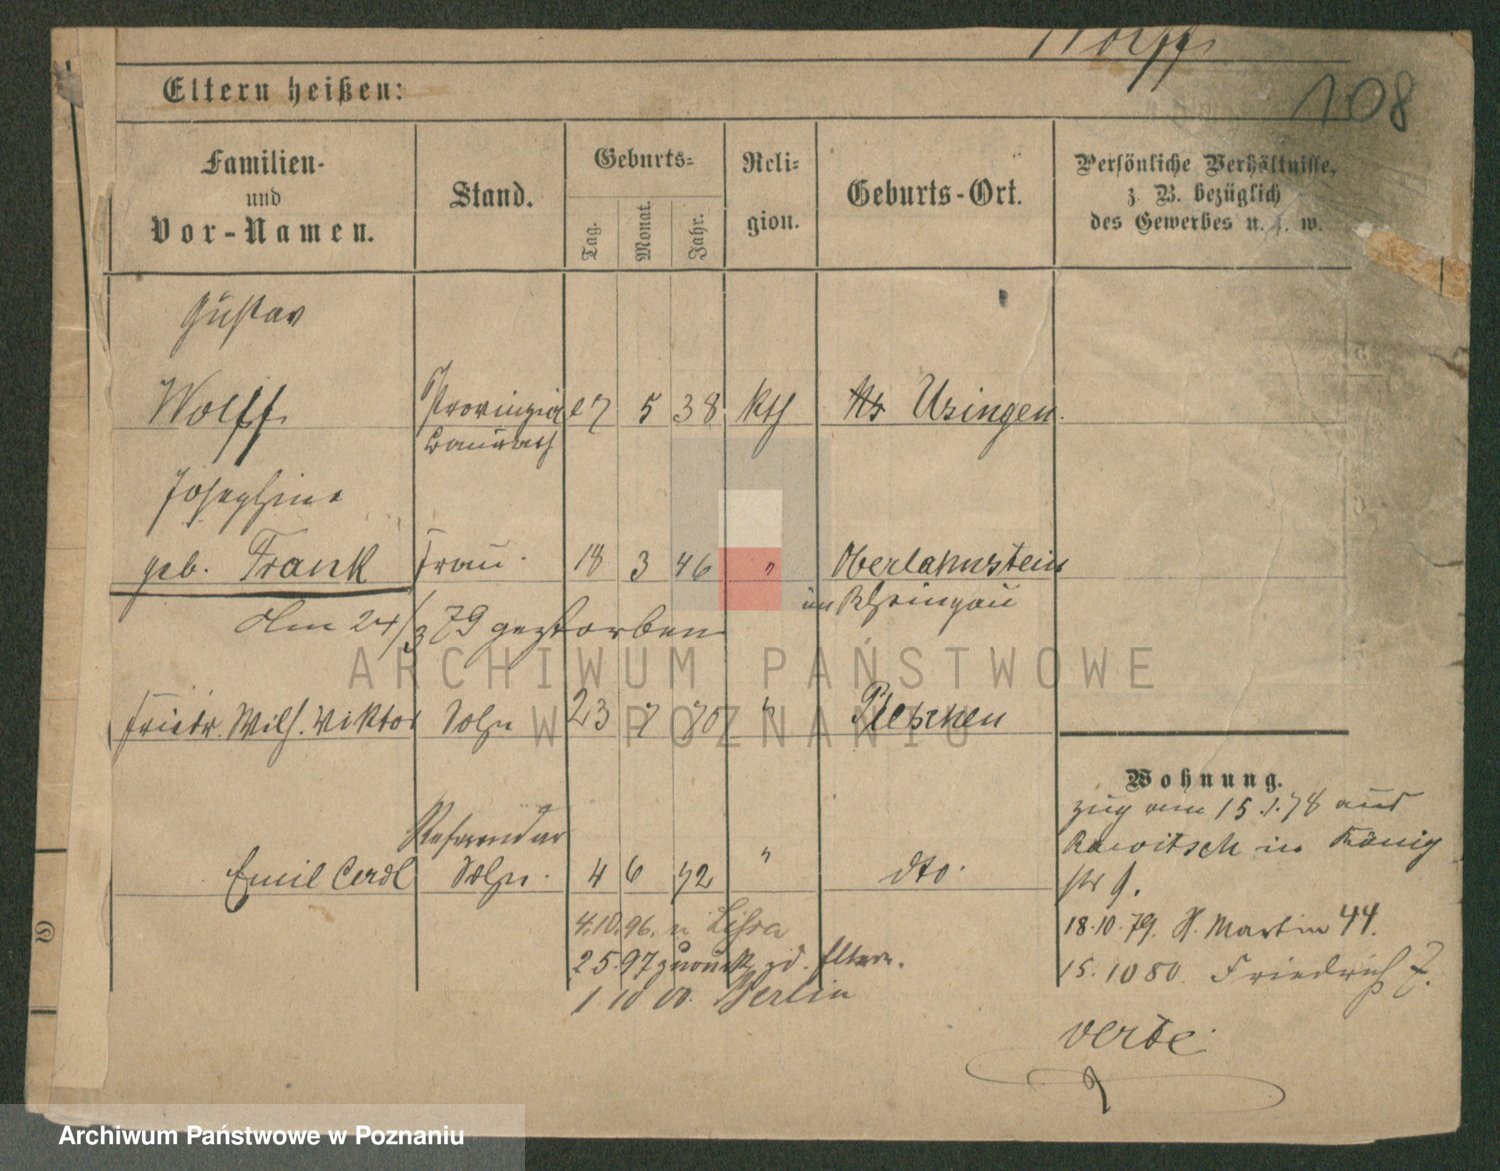 Wolff
108
Eltern heißen:
Familien-
und
Vor-Namen.
Stand.
Geburts-
Tag.
Monat.
Jahr.
Reli-
gion.
Geburts-Ort.
Persönliche Verhältnisse,
z. B. bezüglich
des Gewerbes u. s. w.
Gustav
Wolff Provinzial 27 5 38 kth Usingen.
Baurath
Josephine
geb. Frank Frau. 18 3 46 " Oberlahnstein
im Rheingau
Am 24/3 79 gestorben
Friedr. Wilh. Viktor Sohn 23 7 70 " Pleschen
Referendar
Emil Sohn. 4 6 72 " dto.
4.10.96. n
2 5.97 zurück zd. Eltern.
1.10 00. Berlin
Wohnung.
zug am 15.1.78 aus
Rawitsch in König
str 9.
18.10.79. St. Martin 44.
15.10 80. Friedrich 7.
verte
ARCHIWUM PAŃSTWOWE
W POZNANIU
Archiwum Państwowe w Poznaniu